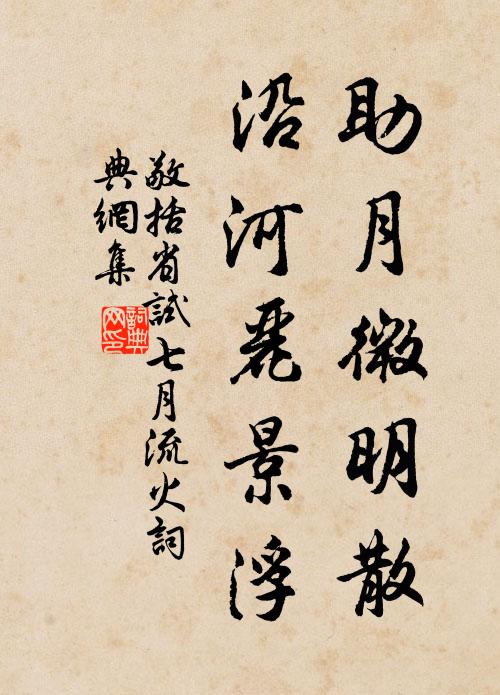 助月微明散
沿河麗景浮
敬括省試七月流火詞
典網集
詞典
网印